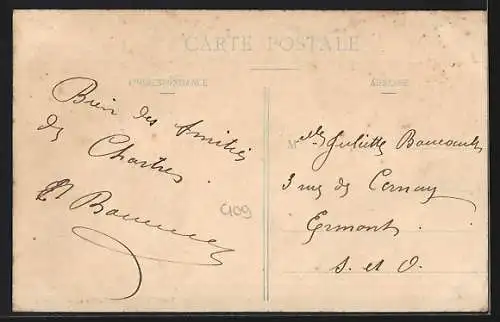 CARTE POSTALE
CORRESPONDANCE
ADRESSE
Bien des Amitiés
de Chartres
909
Mlle Juliette
3 rue de Cernay
Ermont
S. et O.